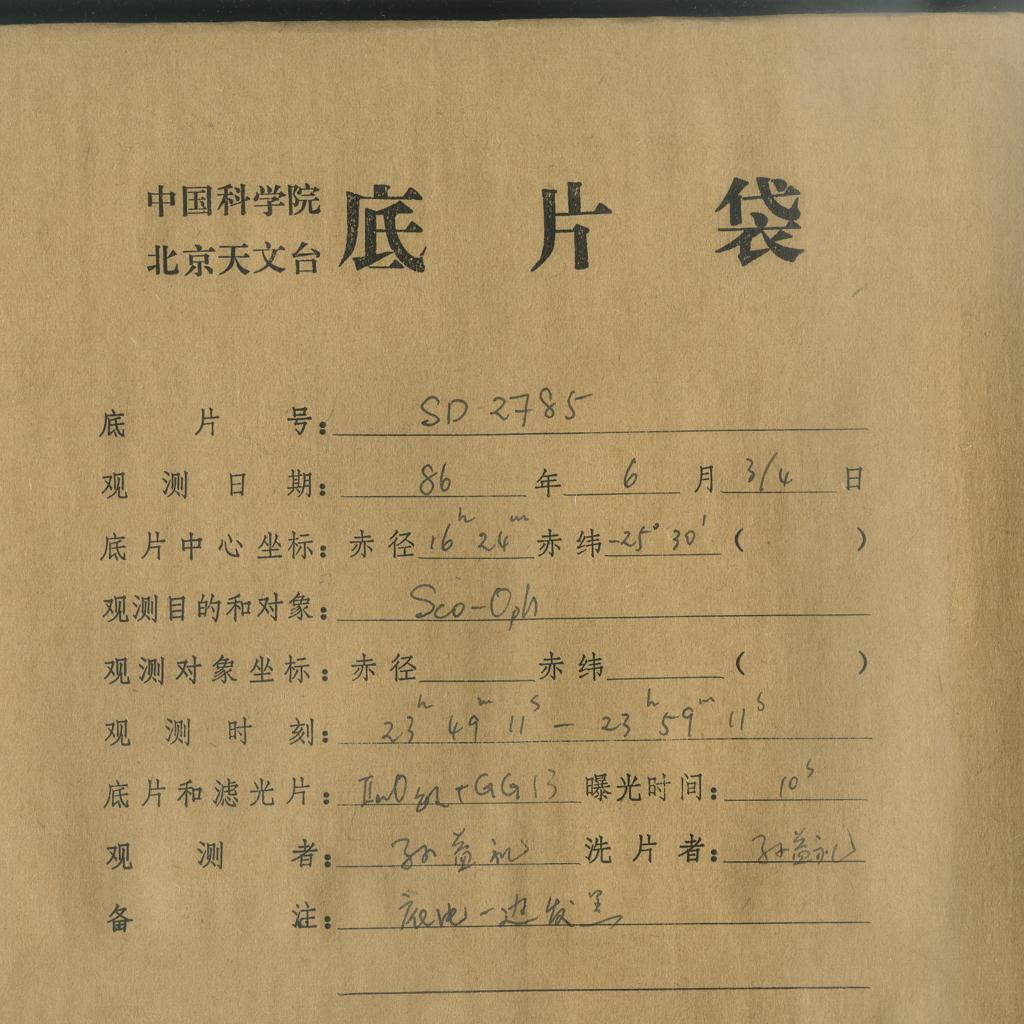 中国科学院
北京天文台
底片袋
底片号: SD 2785
观测日期: 86 年 6 月 3/4 日
底片中心坐标: 赤径 16h 24m 赤纬 -25° 30′ ( )
观测目的和对象: Sco-Oph
观测对象坐标: 赤径 赤纬 ( )
观测时刻: 23h 49m 11s — 23h 59m 11s
底片和滤光片: +GG13 曝光时间: 10s
观测者: 孙益礼 洗片者: 孙益礼
备注: 一边发黑